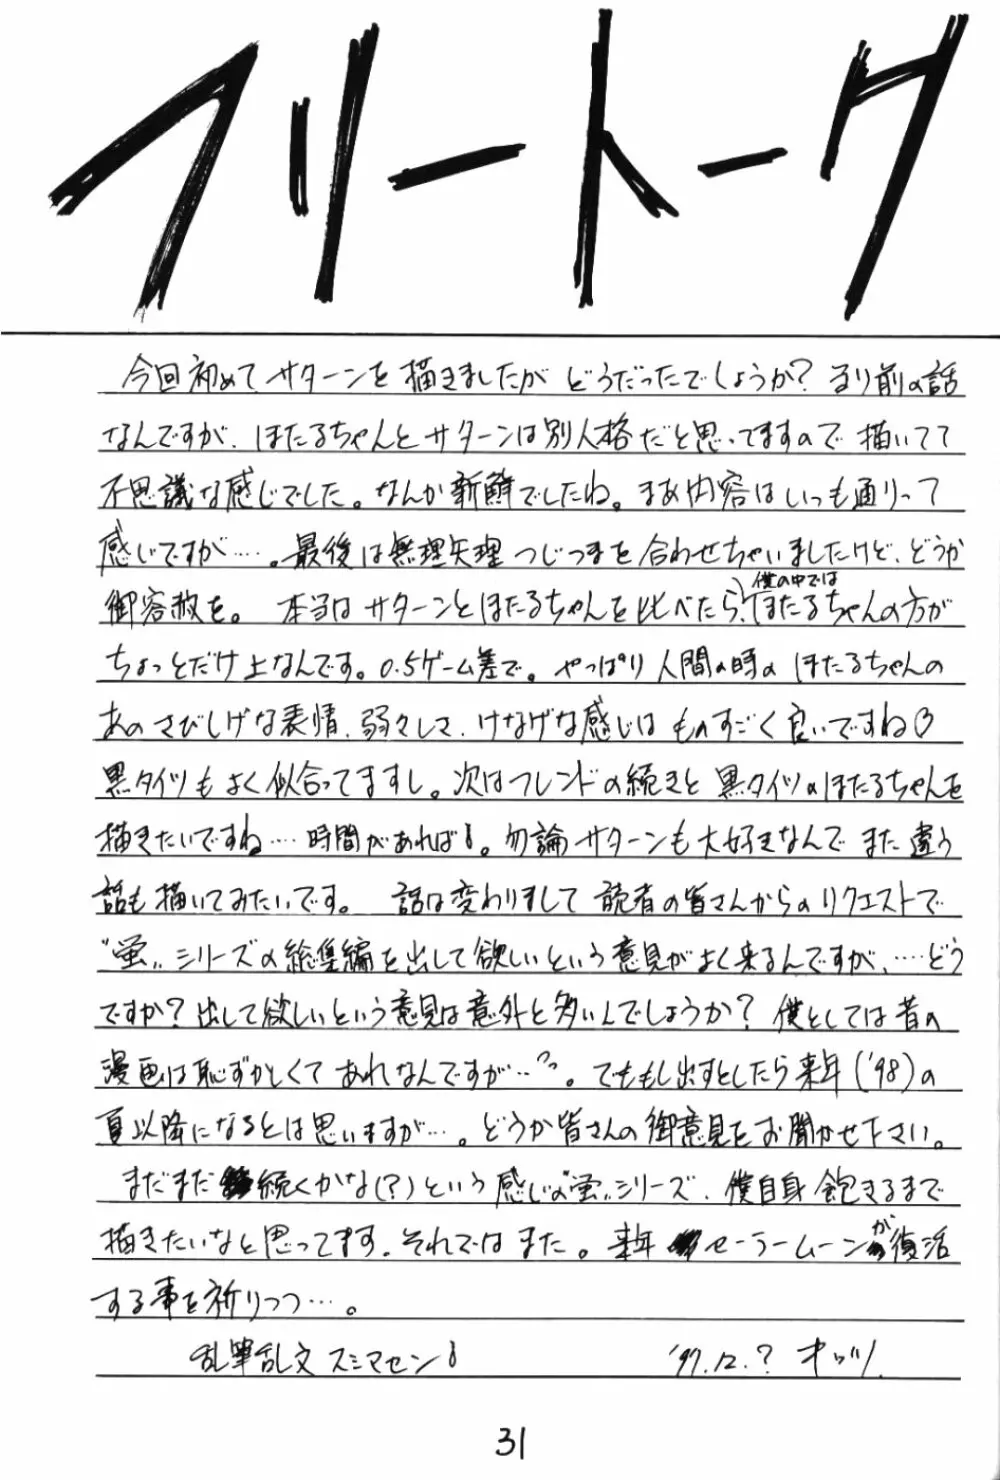 フリートーク
今回初めてサターンを描きましたがどうだったでしょうか? あり前の話
なんですが、ほたるちゃんとサターンは別人格だと思ってますので描いてて
不思議な感じでした。なんか新鮮でしたね。まあ内容はいつも通りって
感じですが‥‥。最後は無理矢理つじつまを合わせちゃいましたけど、どうか
御容赦を。 本当はサターンとほたるちゃんを比べたら、僕の中ではほたるちゃんの方が
ちょっとだけ上なんです。0.5ゲーム差で。やっぱり人間の時のほたるちゃんの
あのさびしげな表情、弱々しさ、けなげな感じはものすごく良いですね♡
黒タイツもよく似合ってますし。次はフレンドの続きと黒タイツのほたるちゃんを
描きたいですね‥‥時間があれば!。勿論サターンも大好きなんでまた違う
話も描いてみたいです。 話は変わりまして読者の皆さんからのリクエストで
〝蛍〟シリーズの総集編を出して欲しいという意見がよく来るんですが、‥‥どう
ですか?出して欲しいという意見は意外と多いんでしょうか? 僕としては昔の
漫画は恥ずかしくてあれなんですが‥‥。でももし出すとしたら来年('98)の
夏以降になるとは思いますが‥‥。どうか皆さんの御意見をお聞かせ下さい。
まだまだ続くかな(?)という感じの〝蛍〟シリーズ、僕自身飽きるまで
描きたいなと思ってます。それではまた。来年セーラームーンが復活
する事を祈りつつ‥‥。
乱筆乱文スミマセン! '97.12.?
31